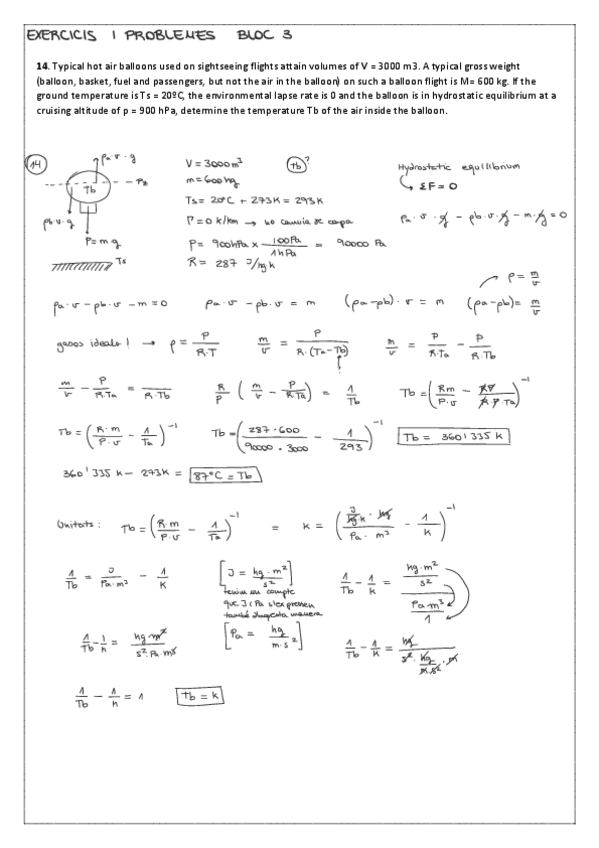 EXERCICIS I PROBLEMES BLOC 3
14. Typical hot air balloons used on sightseeing flights attain volumes of V = 3000 m3. A typical gross weight
(balloon, basket, fuel and passengers, but not the air in the balloon) on such a balloon flight is M= 600 kg. If the
ground temperature is Ts = 20ºC, the environmental lapse rate is 0 and the balloon is in hydrostatic equilibrium at a
cruising altitude of p = 900 hPa, determine the temperature Tb of the air inside the balloon.
14
ρa·v·g
Tb
ρb·v·g
P=m·g
Ts
V = 3000 m³
m = 600 kg
Ts = 20°C + 273K = 293K
Γ = 0 k/km → no canvia de capa
P = 900hPa × 100Pa/1hPa = 90000 Pa
R = 287 J/kg k
tb?
Hydrostatic equilibrium
↳ ΣF = 0
ρa·v·g − ρb·v·g − m·g = 0
ρ = m/v
ρa·v − ρb·v − m = 0 ρa·v − ρb·v = m (ρa−ρb)·v = m (ρa−ρb) = m/v
gasos ideals! → ρ = P/R·T m/v = P/R·(Ta−Tb) m/v = P/R·Ta − P/R·Tb
m/v − P/R·Ta = /R·Tb R/P (m/v − P/R·Ta) = 1/Tb Tb = (Rm/P·v − R·P/R·P·Ta)⁻¹
Tb = (R·m/P·v − 1/Ta)⁻¹ Tb = (287·600/90000·3000 − 1/293)⁻¹ Tb = 360'335 K
360'335 K − 273K = 87°C = Tb
Unitats: Tb = (R·m/P·v − 1/Ta)⁻¹ = K = (J/kg·k · kg/Pa·m³ − 1/K)⁻¹
1/Tb = J/Pa·m³ − 1/K [J = kg·m²/s²] 1/Tb − 1/K = kg·m²/s² / Pa·m³/1
tenim en compte
que J i Pa s'expressen
també d'aquesta manera
1/Tb − 1/K = kg·m²/s²·Pa·m³ [Pa = kg/m·s²] 1/Tb − 1/K = kg/s²·kg/m·s²·m
1/Tb − 1/K = 1 tb = K